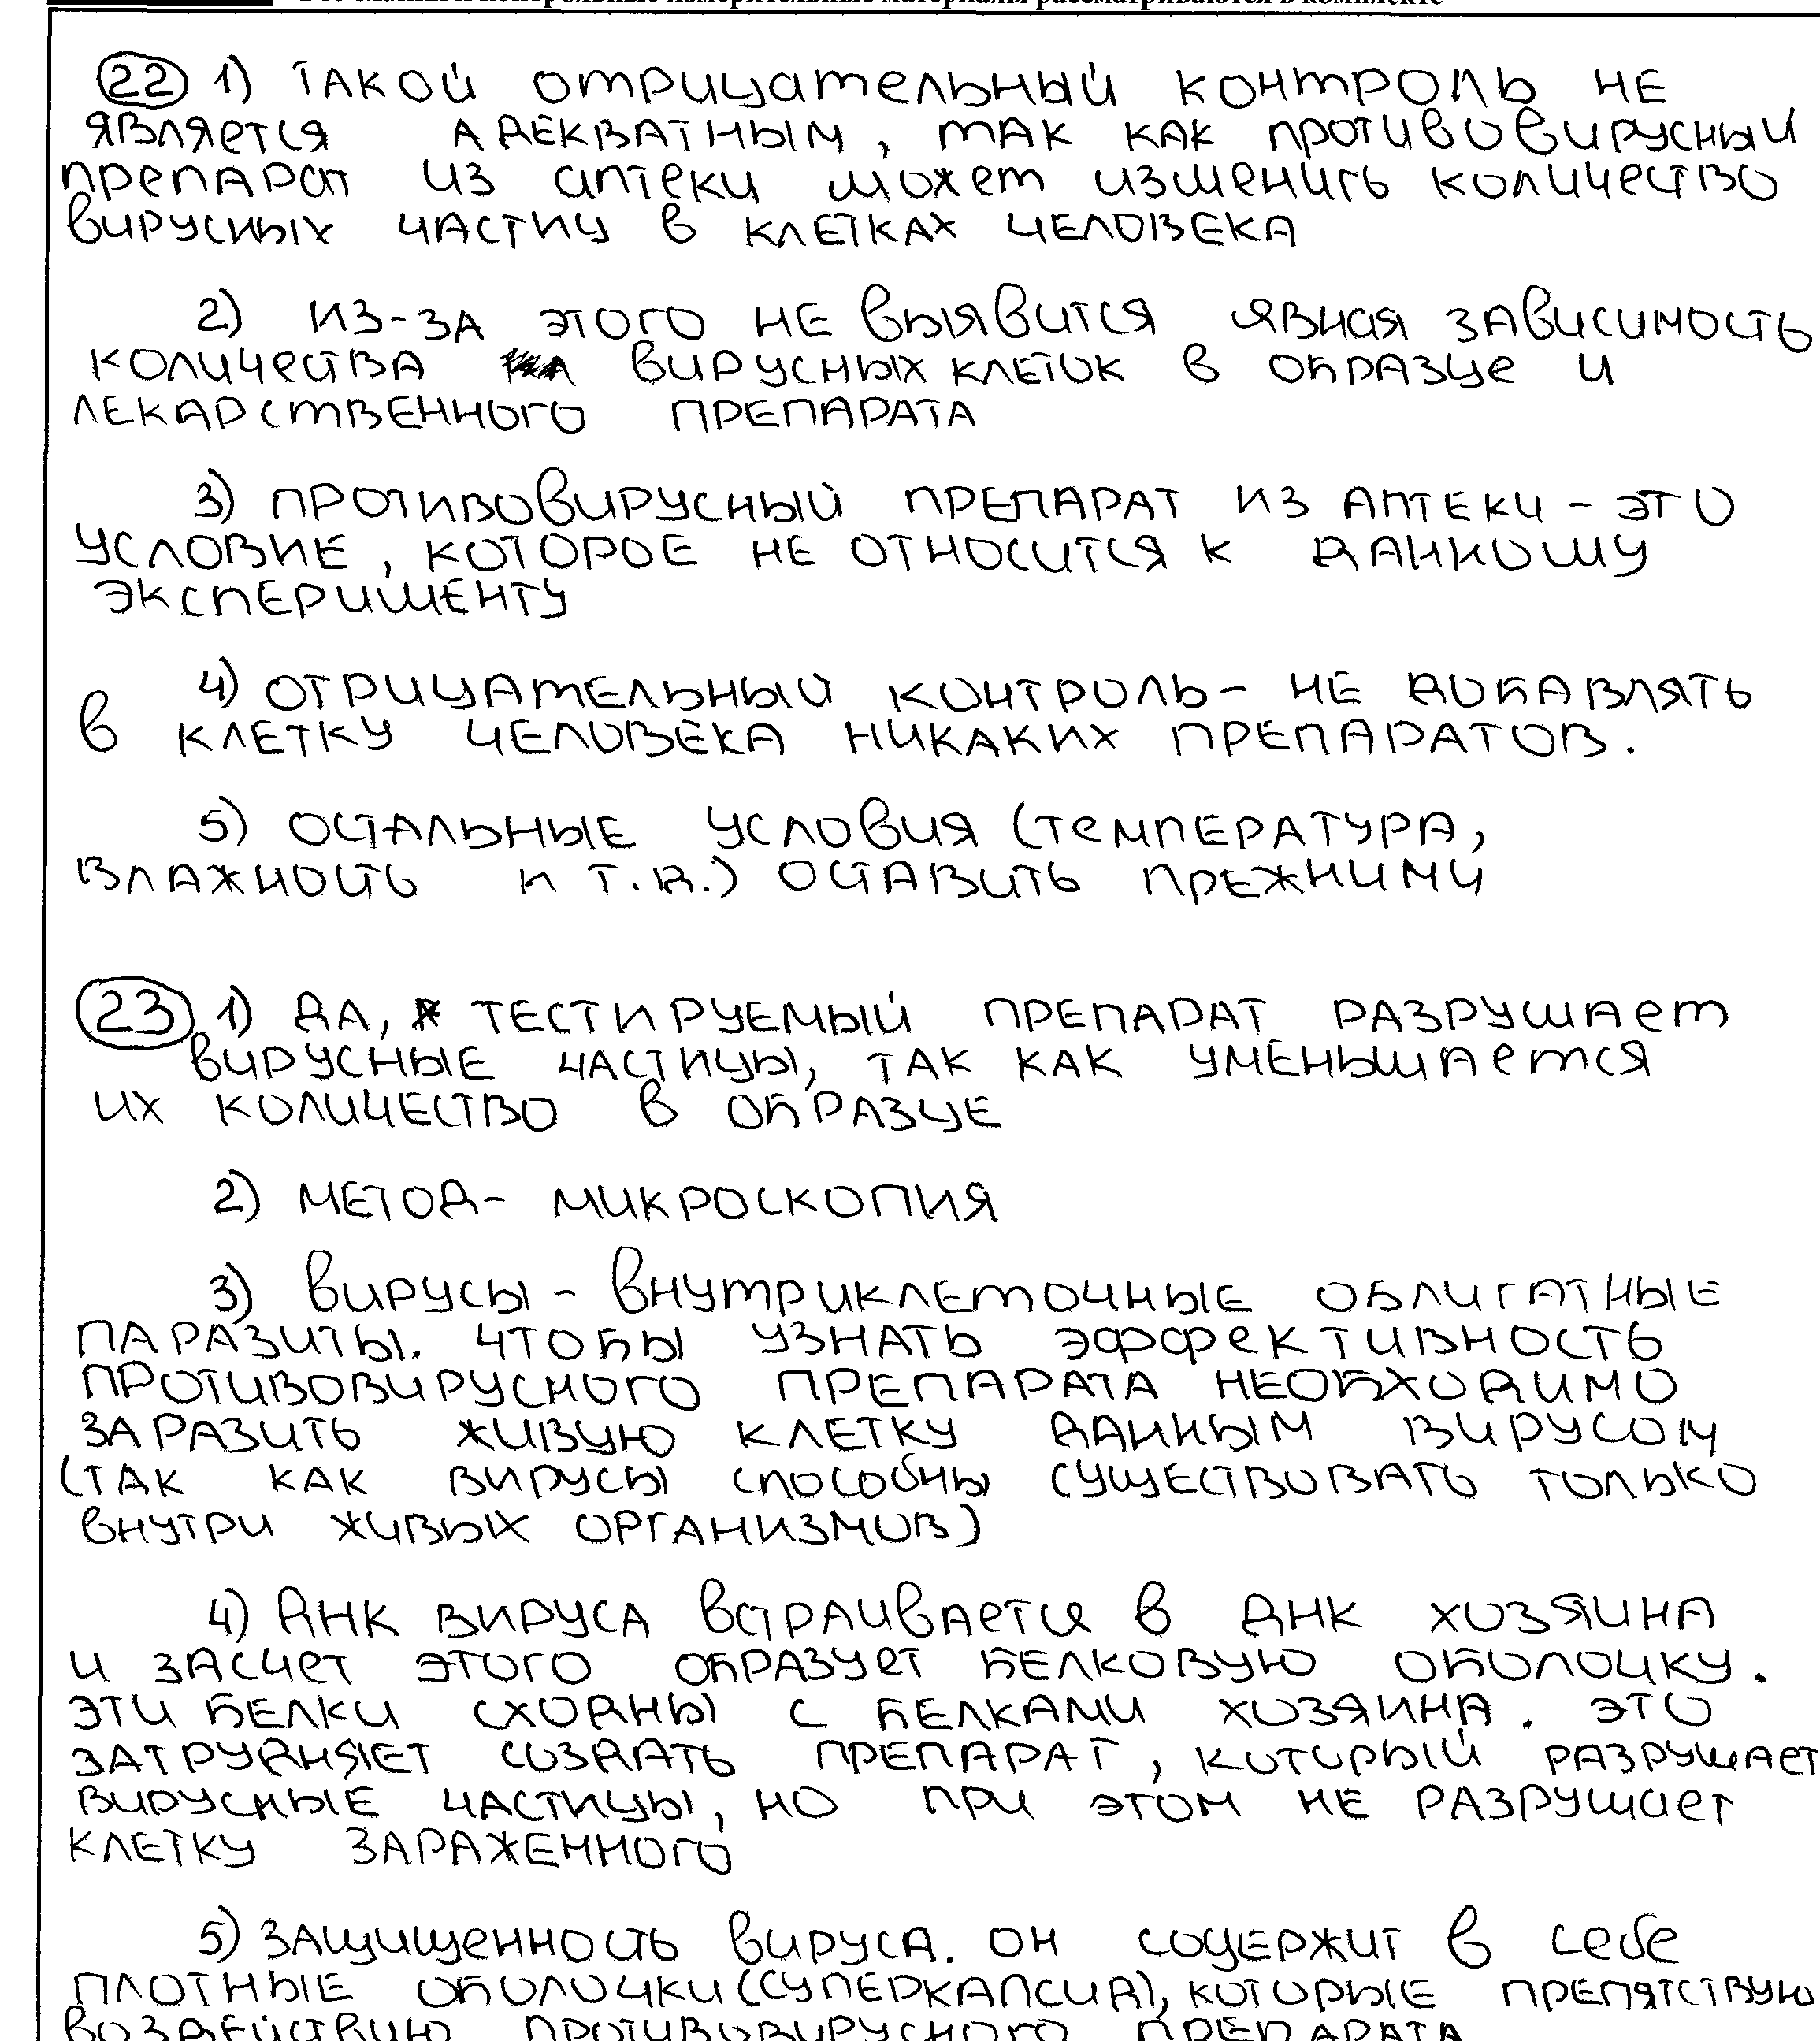 Все бланки и контрольные измерительные материалы рассматриваются в комплекте
22 1) Такой отрицательный контроль не
является адекватным, так как противовирусный
препарат из аптеки может изменить количество
вирусных частиц в клетках человека
2) Из-за этого не выявится явная зависимость
количества вирусных клеток в образце и
лекарственного препарата
3) Противовирусный препарат из аптеки - это
условие, которое не относится к данному
эксперименту
4) Отрицательный контроль - не добавлять
в клетку человека никаких препаратов.
5) Остальные условия (температура,
влажность и т.д.) оставить прежними
23 1) Да, тестируемый препарат разрушает
вирусные частицы, так как уменьшается
их количество в образце
2) Метод - микроскопия
3) Вирусы - внутриклеточные облигатные
паразиты. Чтобы узнать эффективность
противовирусного препарата необходимо
заразить живую клетку данным вирусом
(так как вирусы способны существовать только
внутри живых организмов)
4) ДНК вируса встраивается в ДНК хозяина
и засчет этого образует белковую оболочку.
Эти белки сходны с белками хозяина. Это
затрудняет создать препарат, который разрушает
вирусные частицы, но при этом не разрушает
клетку зараженного
5) Защищенность вируса. Он содержит в себе
плотные оболочки (суперкапсид), которые препятствую
воздействию противовирусного препарата